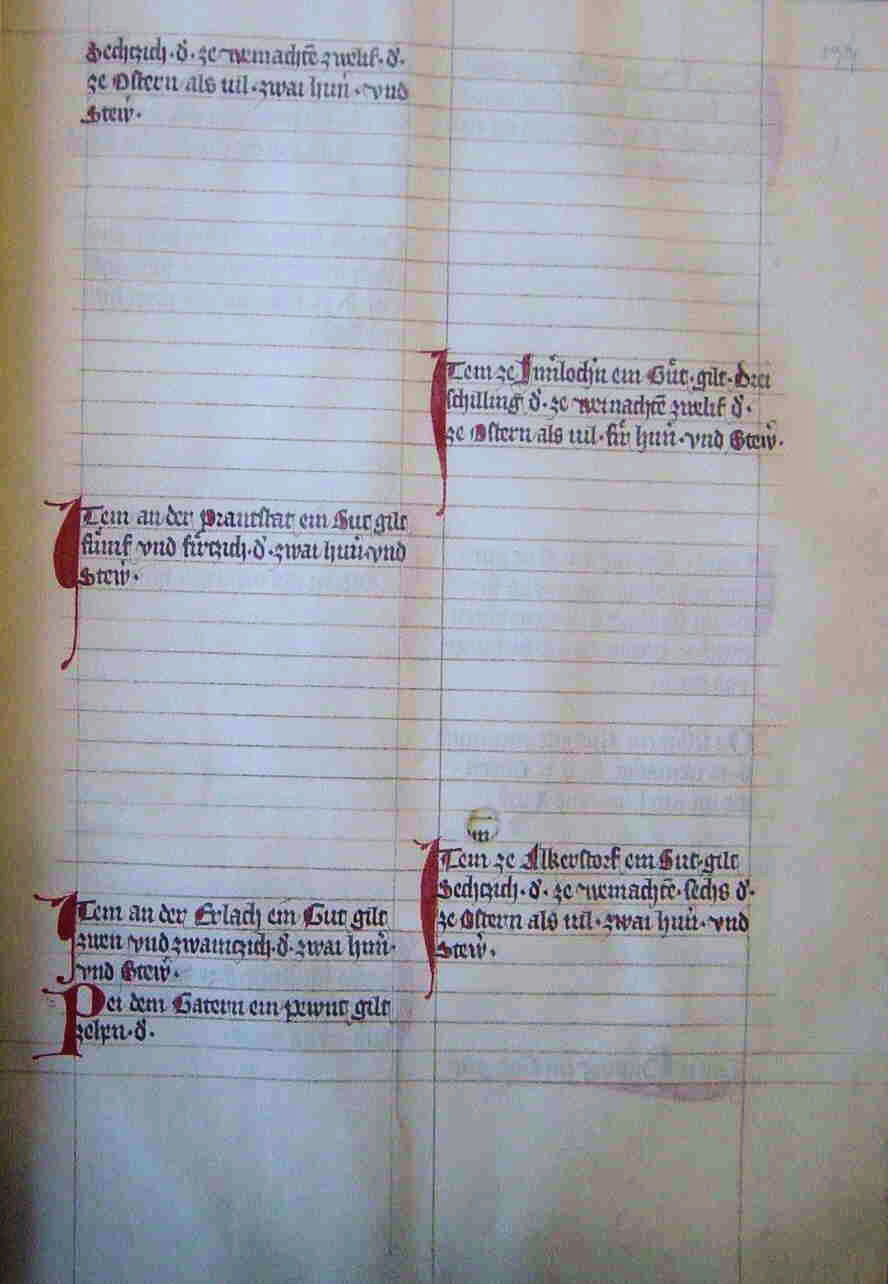 Sechtzich · d̓ · ze weinachtē zwelif · d̓ ·
ze Ostern als uil · zwai hun̓ · vnd
Stew̓ ·
Item an der Prantstat ein Gut gilt
fu̓mf vnd fir̓tzich · d̓ · zwai hun̓ · vnd
Stew̓ ·
Item an der Erlach ein Gut gilt
zwen vnd zwaintzich · d̓ · zwai hun̓ ·
vnd Stew̓ ·
Pei dem Gatern ein pewnt gilt
zehen · d̓ ·
Item ze ein Gu̓t · gilt · Drei
schilling d̓ · ze weinachtē zwelif d̓ ·
ze Ostern als uil · fir̓ hun̓ · vnd Stew̓ ·
m
Item ze Alkerstorf ein Gut · gilt
Sechtzich · d̓ · ze weinachtē · sechs d̓ ·
ze Ostern als uil · zwai hun̓ · vnd
Stew̓ ·